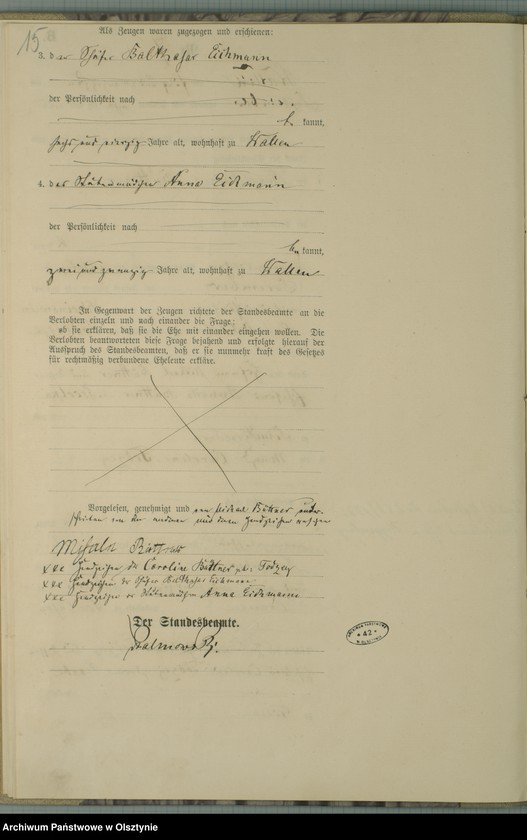 15
Als Zeugen waren zugezogen und erschienen:
3. der Schäfer Balthasar Eichmann
der Persönlichkeit nach
be kannt,
sechs und vierzig Jahre alt, wohnhaft zu Wallen
4. das Anna Eichmann
der Persönlichkeit nach
be kannt,
zwei und zwanzig Jahre alt, wohnhaft zu Wallen
In Gegenwart der Zeugen richtete der Standesbeamte an die
Verlobten einzeln und nach einander die Frage:
ob sie erklären, daß sie die Ehe mit einander eingehen wollen. Die
Verlobten beantworteten diese Frage bejahend und erfolgte hierauf der
Ausspruch des Standesbeamten, daß er sie nunmehr kraft des Gesetzes
für rechtmäßig verbundene Eheleute erkläre.
Vorgelesen, genehmigt und von Michael Bittner unter-
schrieben von den anderen und deren Handzeichen
Bittner
xxx Handzeichen der Caroline Bittner geb.
xxx Handzeichen des Schäfer Balthasar Eichmann
xxx Handzeichen der Anna Eichmann
Der Standesbeamte.
* 42 *
Archiwum Państwowe w Olsztynie